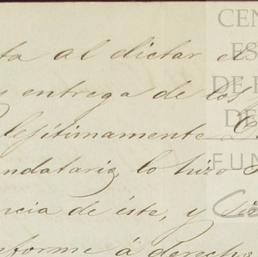 ta al dictar el
y entrega de los
legítimamente
ndataria, lo hizo
ncia de éste, y
nforme á derecho
CEN
ES
DE
DE
FUN